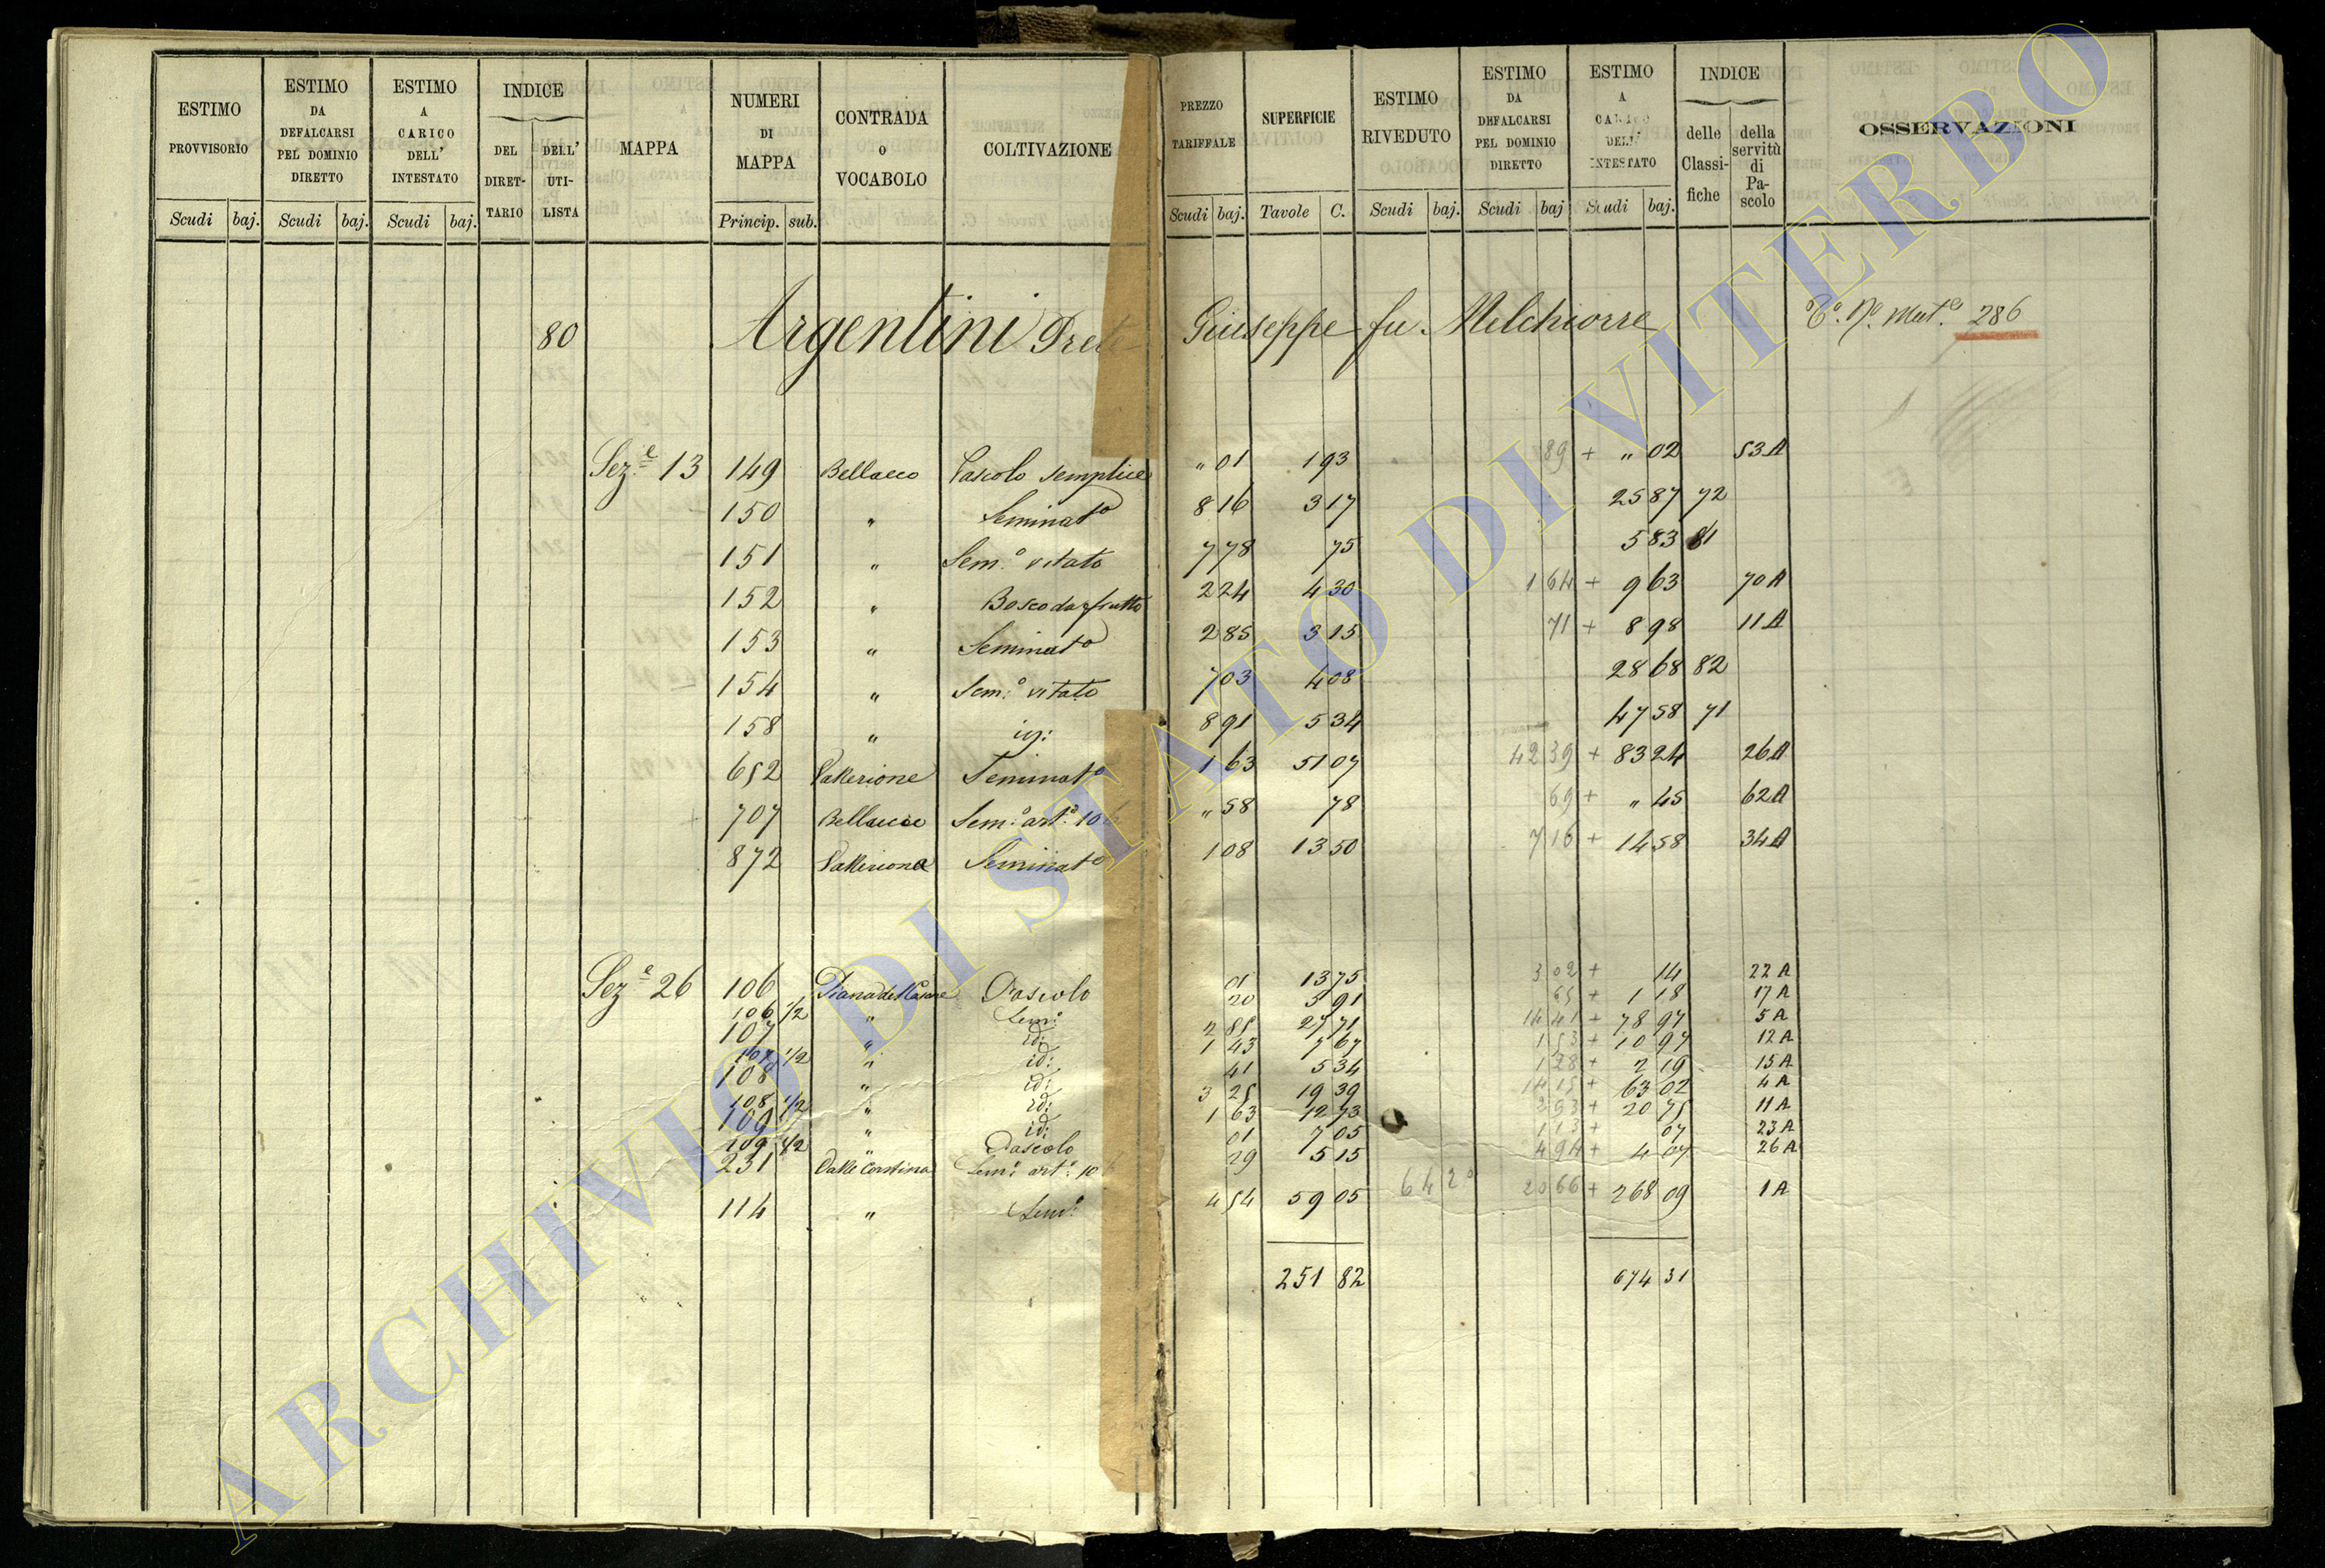 ESTIMO PROVVISORIO | ESTIMO DA DEFALCARSI PEL DOMINIO DIRETTO | ESTIMO A CARICO DELL' INTESTATO | INDICE | MAPPA | NUMERI DI MAPPA | CONTRADA O VOCABOLO | COLTIVAZIONE | PREZZO TARIFFALE | SUPERFICIE | ESTIMO RIVEDUTO | ESTIMO DA DEFALCARSI PEL DOMINIO DIRETTO | ESTIMO A CARICO DELL' INTESTATO | INDICE | OSSERVAZIONI
DEL DIRETTARIO | DELL' UTILISTA | delle Classifiche | della servitù di Pascolo
Scudi | baj. | Scudi | baj. | Scudi | baj. | Princip. | sub. | Scudi | baj. | Tavole | C. | Scudi | baj. | Scudi | baj | Scudi | baj.
80 Argentini Prete Giuseppe fu Melchiorre 286
Sez.e 13 149 Bellacco Pascolo semplice " 01 1 93 89 + " 02 53 A
150 " Seminato 8 16 3 17 25 87 72
151 " Sem.o vitato 7 78 75 5 83 81
152 " Bosco da frutto 2 24 4 30 1 64 + 9 63 70 A
153 " Seminato 2 85 3 15 71 + 8 98 11 A
154 " Sem.o vitato 7 03 4 08 28 68 82
158 " 8 91 5 34 47 58 71
652 Seminato 1 63 51 07 42 39 + 83 24 26 A
707 Bellacco Sem.o art.o 106 " 58 78 69 + " 45 62 A
872 Seminato 1 08 13 50 7 16 + 14 58 34 A
Sez.e 26 106 Pascolo 01 13 75 3 02 + 14 22 A
106 1/2 " Sem.o 20 5 91 65 + 1 18 17 A
107 " id: 2 85 27 71 14 41 + 78 97 5 A
107 1/2 " id: 1 43 7 67 1 53 + 10 97 12 A
108 " id: 41 5 34 1 28 + 2 19 15 A
108 1/2 " id: 3 25 19 39 14 15 + 63 02 4 A
109 " id: 1 63 12 73 2 93 + 20 75 11 A
109 1/2 " Pascolo 01 7 05 1 13 + 07 23 A
231 Sem.o art.o 106 29 5 15 4 94 + 4 07 26 A
114 " Sem.o 4 54 59 05 642 20 66 + 268 09 1 A
251 82 674 31
ARCHIVIO DI STATO DI VITERBO